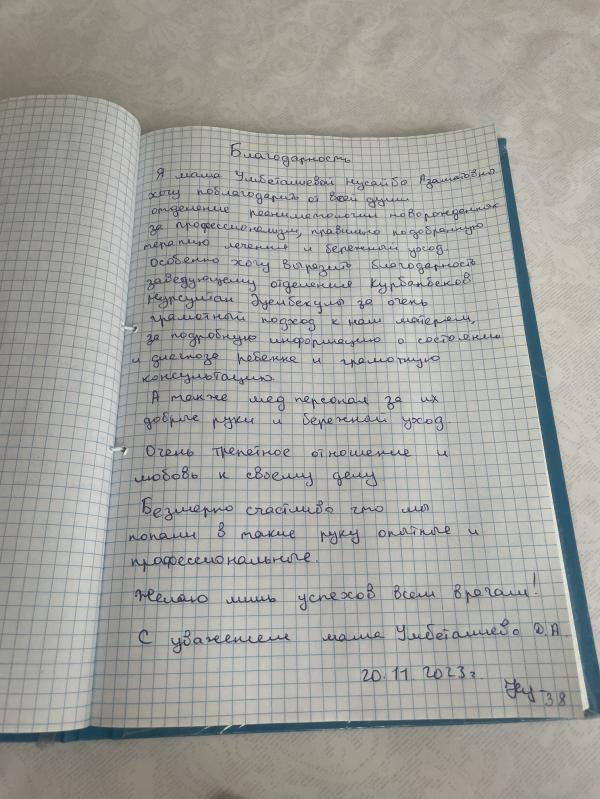 Благодарность
Я мама Умбеталиевой Нусайба Азаматовна
хочу поблагодарить от всей души
отделение реаниматологии новорожденных
за профессионализм, правильно подобранную
терапию лечения и бережный уход.
Особенно хочу вырозить благодарность
заведующему отделения Курбанбеков
Нурсултан Эдембекулы за очень
грамотный подход к нам матерям,
за подробную информацию о состоянии
и диагноза ребенка и грамотную
консультацию.
А также мед персонал за их
добрые руки и бережный уход
Очень трепетное отношение и
любовь к своему делу
Безмерно счастлива что мы
попали в такие руку опытные и
профессиональные.
Желаю лишь успехов всем врачам!
С уважением мама Умбеталиева Д.А.
20.11.2023г.
38